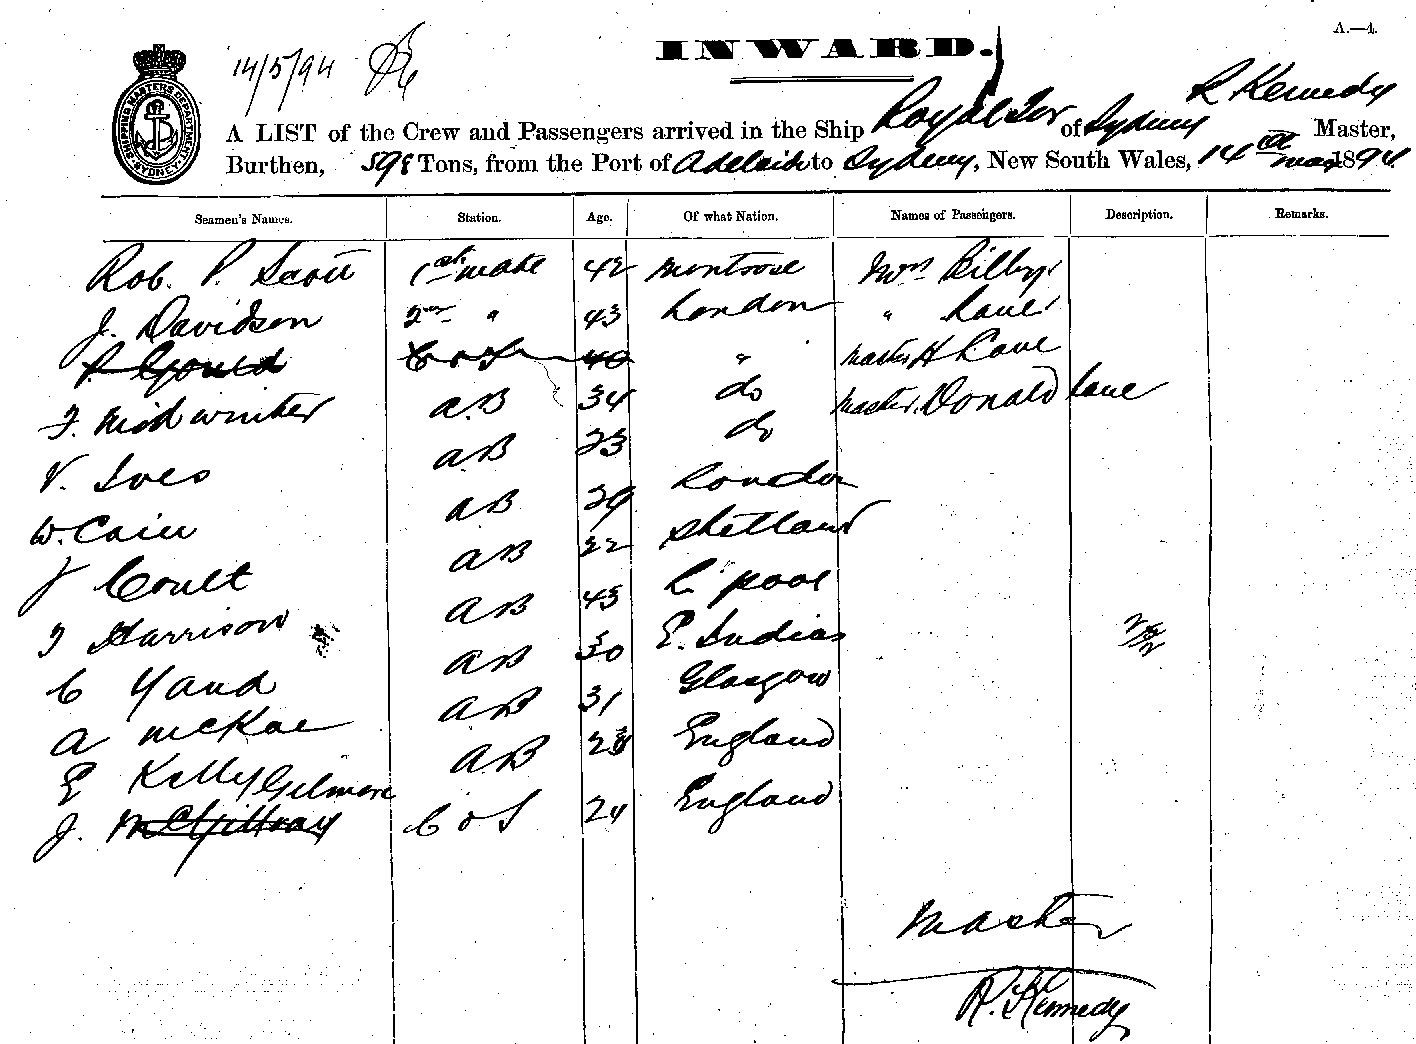 A.—4.
INWARD.
14/5/94
SHIPPING MASTERS DEPARTMENT SYDNEY
R Kennedy
A LIST of the Crew and Passengers arrived in the Ship Royal Tar of Sydney Master,
Burthen, 598 Tons, from the Port of Adelaide to Sydney, New South Wales, 14th May 1894
Seamen's Names. Station. Age. Of what Nation. Names of Passengers. Description. Remarks.
Rob. P. Scott 1st mate 42 Montrose Mrs Bilby
J. Davidson 2nd " 43 London " Lane
P. Gould C o S 40 " Master H Lane
F. Midwinter AB 34 do Master Donald Lane
V. Ives AB 23 do
W. Cain AB 29 London
J Coult AB 22 Shetland
T Harrison AB 43 L'pool
C Yand AB 30 E. Indias
A McRae AB 31 Glasgow
E Kelly AB England
J. McGillray Gilmore C o S 24 England
Master
R. Kennedy